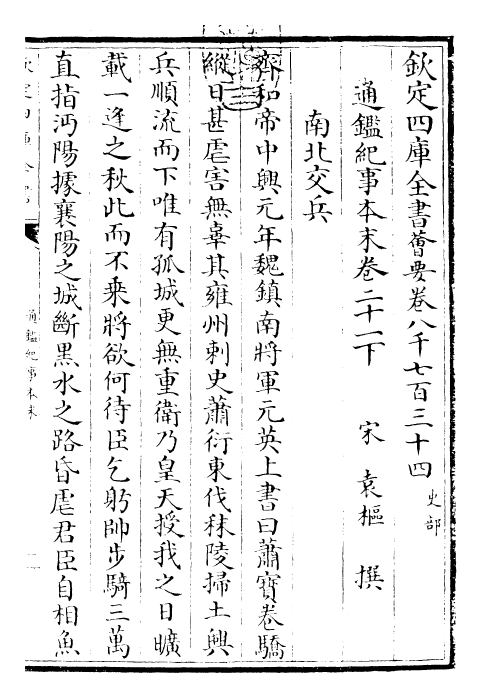 欽定四庫全書薈要卷八千七百三十四 史部
通鑑紀事本末卷二十一下 宋 袁樞 撰
南北交兵
齊和帝中興元年魏鎮南將軍元英上書曰蕭寶卷驕
縱日甚虐害無辜其雍州刺史蕭衍東伐秣陵掃土興
兵順流而下唯有孤城更無重衛乃皇天授我之日曠
載一逢之秋此而不乘將欲何待臣乞躬帥步騎三萬
直指沔陽據襄陽之城斷黑水之路昏虐君臣自相魚
通鑑紀事本末
一